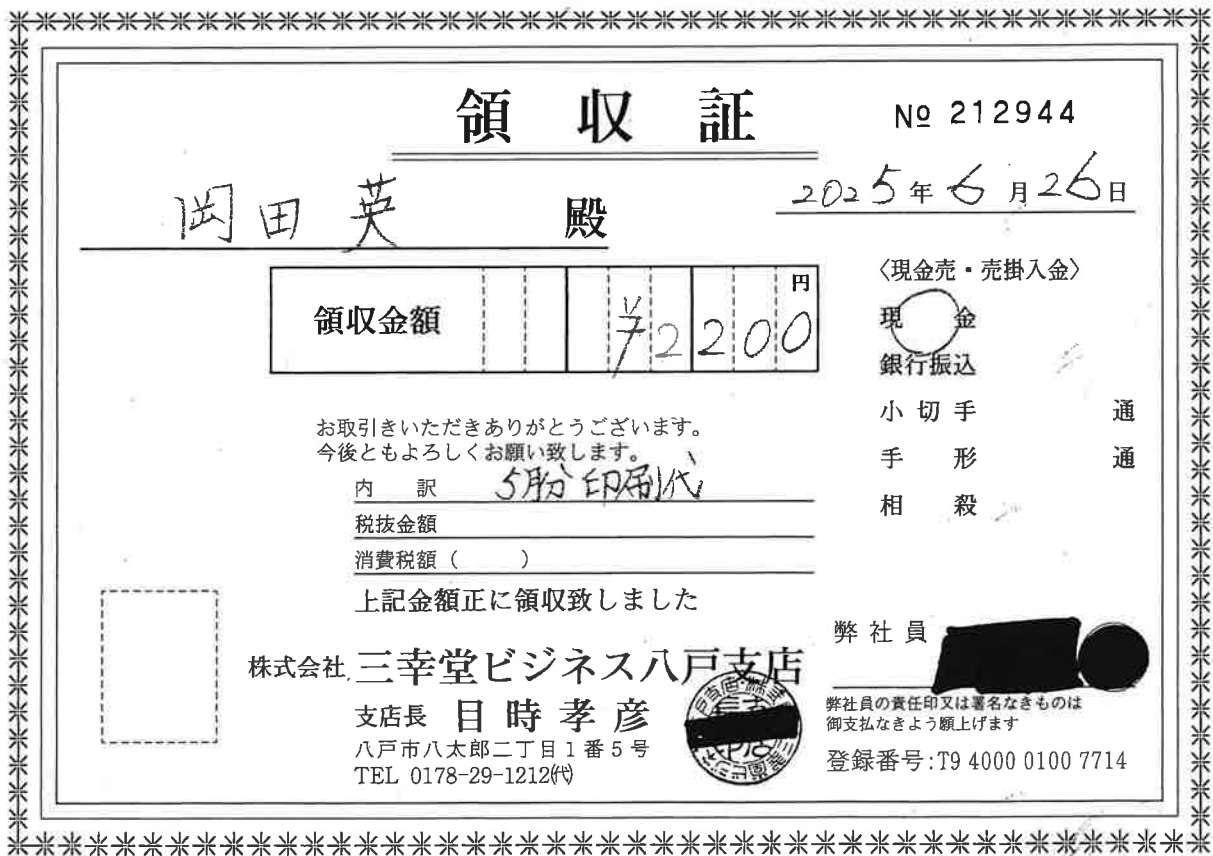 領収証
№ 212944
2025年6月26日
岡田英 殿
領収金額 ¥2200円
〈現金売・売掛入金〉
現金
銀行振込
小切手 通
手形 通
相殺
お取引きいただきありがとうございます。
今後ともよろしくお願い致します。
内訳 5月分印刷代
税抜金額
消費税額（ ）
上記金額正に領収致しました
株式会社 三幸堂ビジネス八戸支店
支店長 目時孝彦
八戸市八太郎二丁目1番5号
TEL 0178-29-1212㈹
弊社員
弊社員の責任印又は署名なきものは
御支払なきよう願上げます
登録番号:T9 4000 0100 7714